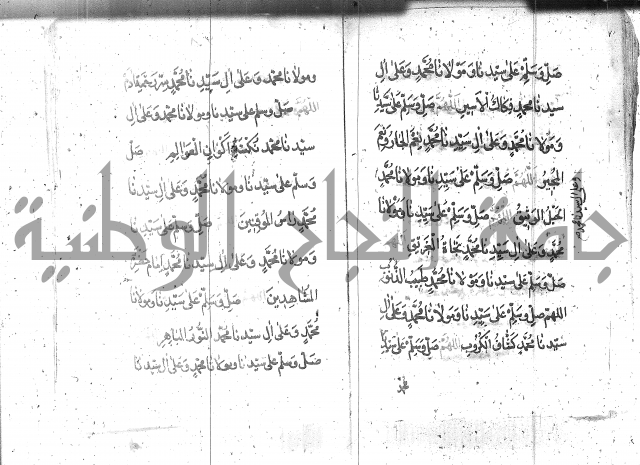 صل وسلم على سيدنا ومولانا محمد وعلى ال
سيدنا محمد فكاك الاسير اللهم صل وسلم على سيدنا
ومولانا محمد وعلى ال سيدنا محمد نعم الجار ونعم
المجير اللهم صل وسلم على سيدنا ومولانا محمد
الحبل الوثيق اللهم صل وسلم على سيدنا ومولانا
محمد وعلى ال سيدنا محمد نجاة الغريق
صل وسلم على سيدنا ومولانا محمد طبيب القلوب
اللهم صل وسلم على سيدنا ومولانا محمد وعلى ال
سيدنا محمد كشاف الكروب اللهم صل وسلم على سيدنا
ومولانا محمد وعلى ال سيدنا محمد
اللهم صل وسلم على سيدنا ومولانا محمد وعلى ال
سيدنا محمد العوالم صل
وسلم على سيدنا ومولانا محمد وعلى ال سيدنا
محمد الموقنين صل وسلم على سيدنا
ومولانا محمد وعلى ال سيدنا محمد امام
المشاهدين صل وسلم على سيدنا ومولانا
محمد وعلى ال سيدنا محمد النور الباهر
صل وسلم على سيدنا ومولانا محمد وعلى ال سيدنا
جمعة الماجد الوطنية